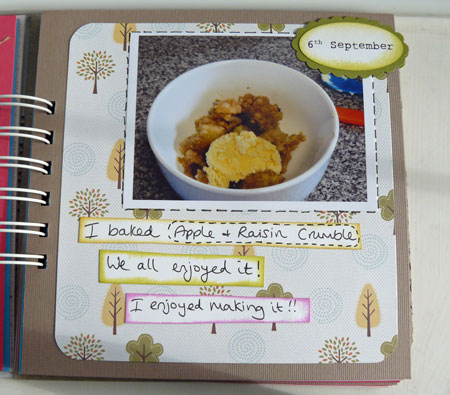 6th September
I baked 'Apple + Raisin Crumble'
We all enjoyed it!
I enjoyed making it!!